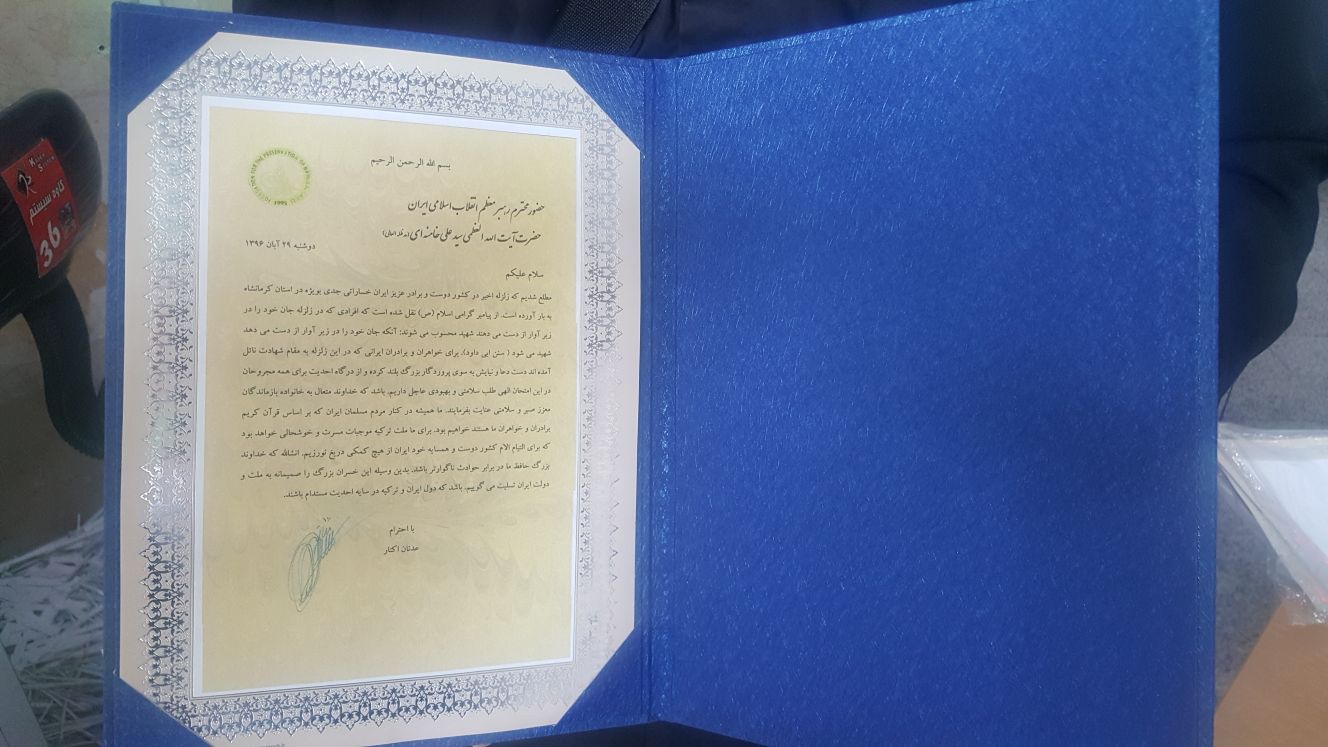 بسم الله الرحمن الرحیم
حضور محترم رهبر معظم انقلاب اسلامی ایران
حضرت آیت الله العظمی سید علی خامنه ای (مد ظله العالی)
دوشنبه ۲۹ آبان ۱۳۹۶
سلام علیکم
مطلع شدیم که زلزله اخیر در کشور دوست و برادر عزیز ایران خساراتی جدی بویژه در استان کرمانشاه
به بار آورده است. از پیامبر گرامی اسلام (ص) نقل شده است که افرادی که در زلزله جان خود را در
زیر آوار از دست می دهند شهید محسوب می شوند: آنکه جان خود را در زیر آوار از دست می دهد
شهید می شود ( سنن ابی داود). برای خواهران و برادران ایرانی که در این زلزله به مقام شهادت نائل
آمده اند دست دعا و نیایش به سوی پروردگار بزرگ بلند کرده و از درگاه احدیت برای همه مجروحان
در این امتحان الهی طلب سلامتی و بهبودی عاجل داریم. باشد که خداوند متعال به خانواده بازماندگان
معزز صبر و سلامتی عنایت بفرمایند. ما همیشه در کنار مردم مسلمان ایران که بر اساس قرآن کریم
برادران و خواهران ما هستند خواهیم بود. برای ما ملت ترکیه موجبات مسرت و خوشحالی خواهد بود
که برای التیام الام کشور دوست و همسایه خود ایران از هیچ کمکی دریغ نورزیم. انشالله که خداوند
بزرگ حافظ ما در برابر حوادث ناگوارتر باشد. بدین وسیله این خسران بزرگ را صمیمانه به ملت و
دولت ایران تسلیت می گوییم. باشد که دول ایران و ترکیه در سایه احدیت مستدام باشند.
با احترام
عدنان اکتار
KAVEH
SYSTEM
کاوه سیستم
36